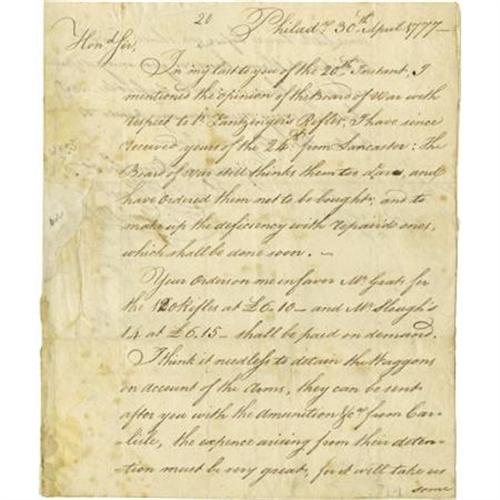 20
Philad.ª 30.th April 1777—
Hon.d Sir,
In my last to you of the 20.th Instant, I
mentioned the opinion of the Board of War with
respect to Mr Pantzinger's Rifles, I have since
received yours of the 24.th from Lancaster: The
Board of War still thinks them too Dear, and
have Ordered them not to be bought; and to
make up the deficiency with repaired ones,
which shall be done soon. —
Your Order on me in favor Mr Gratz for
the 120 Rifles at £6.10— and Mr Slough's
14 at £6.15— shall be paid on demand.
I think it needless to detain the Waggons
on account of the Arms, they can be sent
after you with the Amunition &c.a from Car-
lisle, the expence arising from their deten-
tion must be very great, for it will take us
some